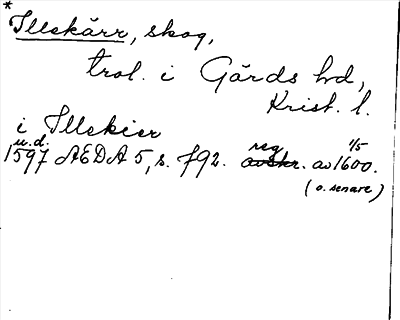 * Illskärr, skog,
trol. i Gärds hd,
Krist. l.
i Illskier
u.d. 1/5
1597 AEDA 5, s. 792. reg. av 1600.
(o. senare)